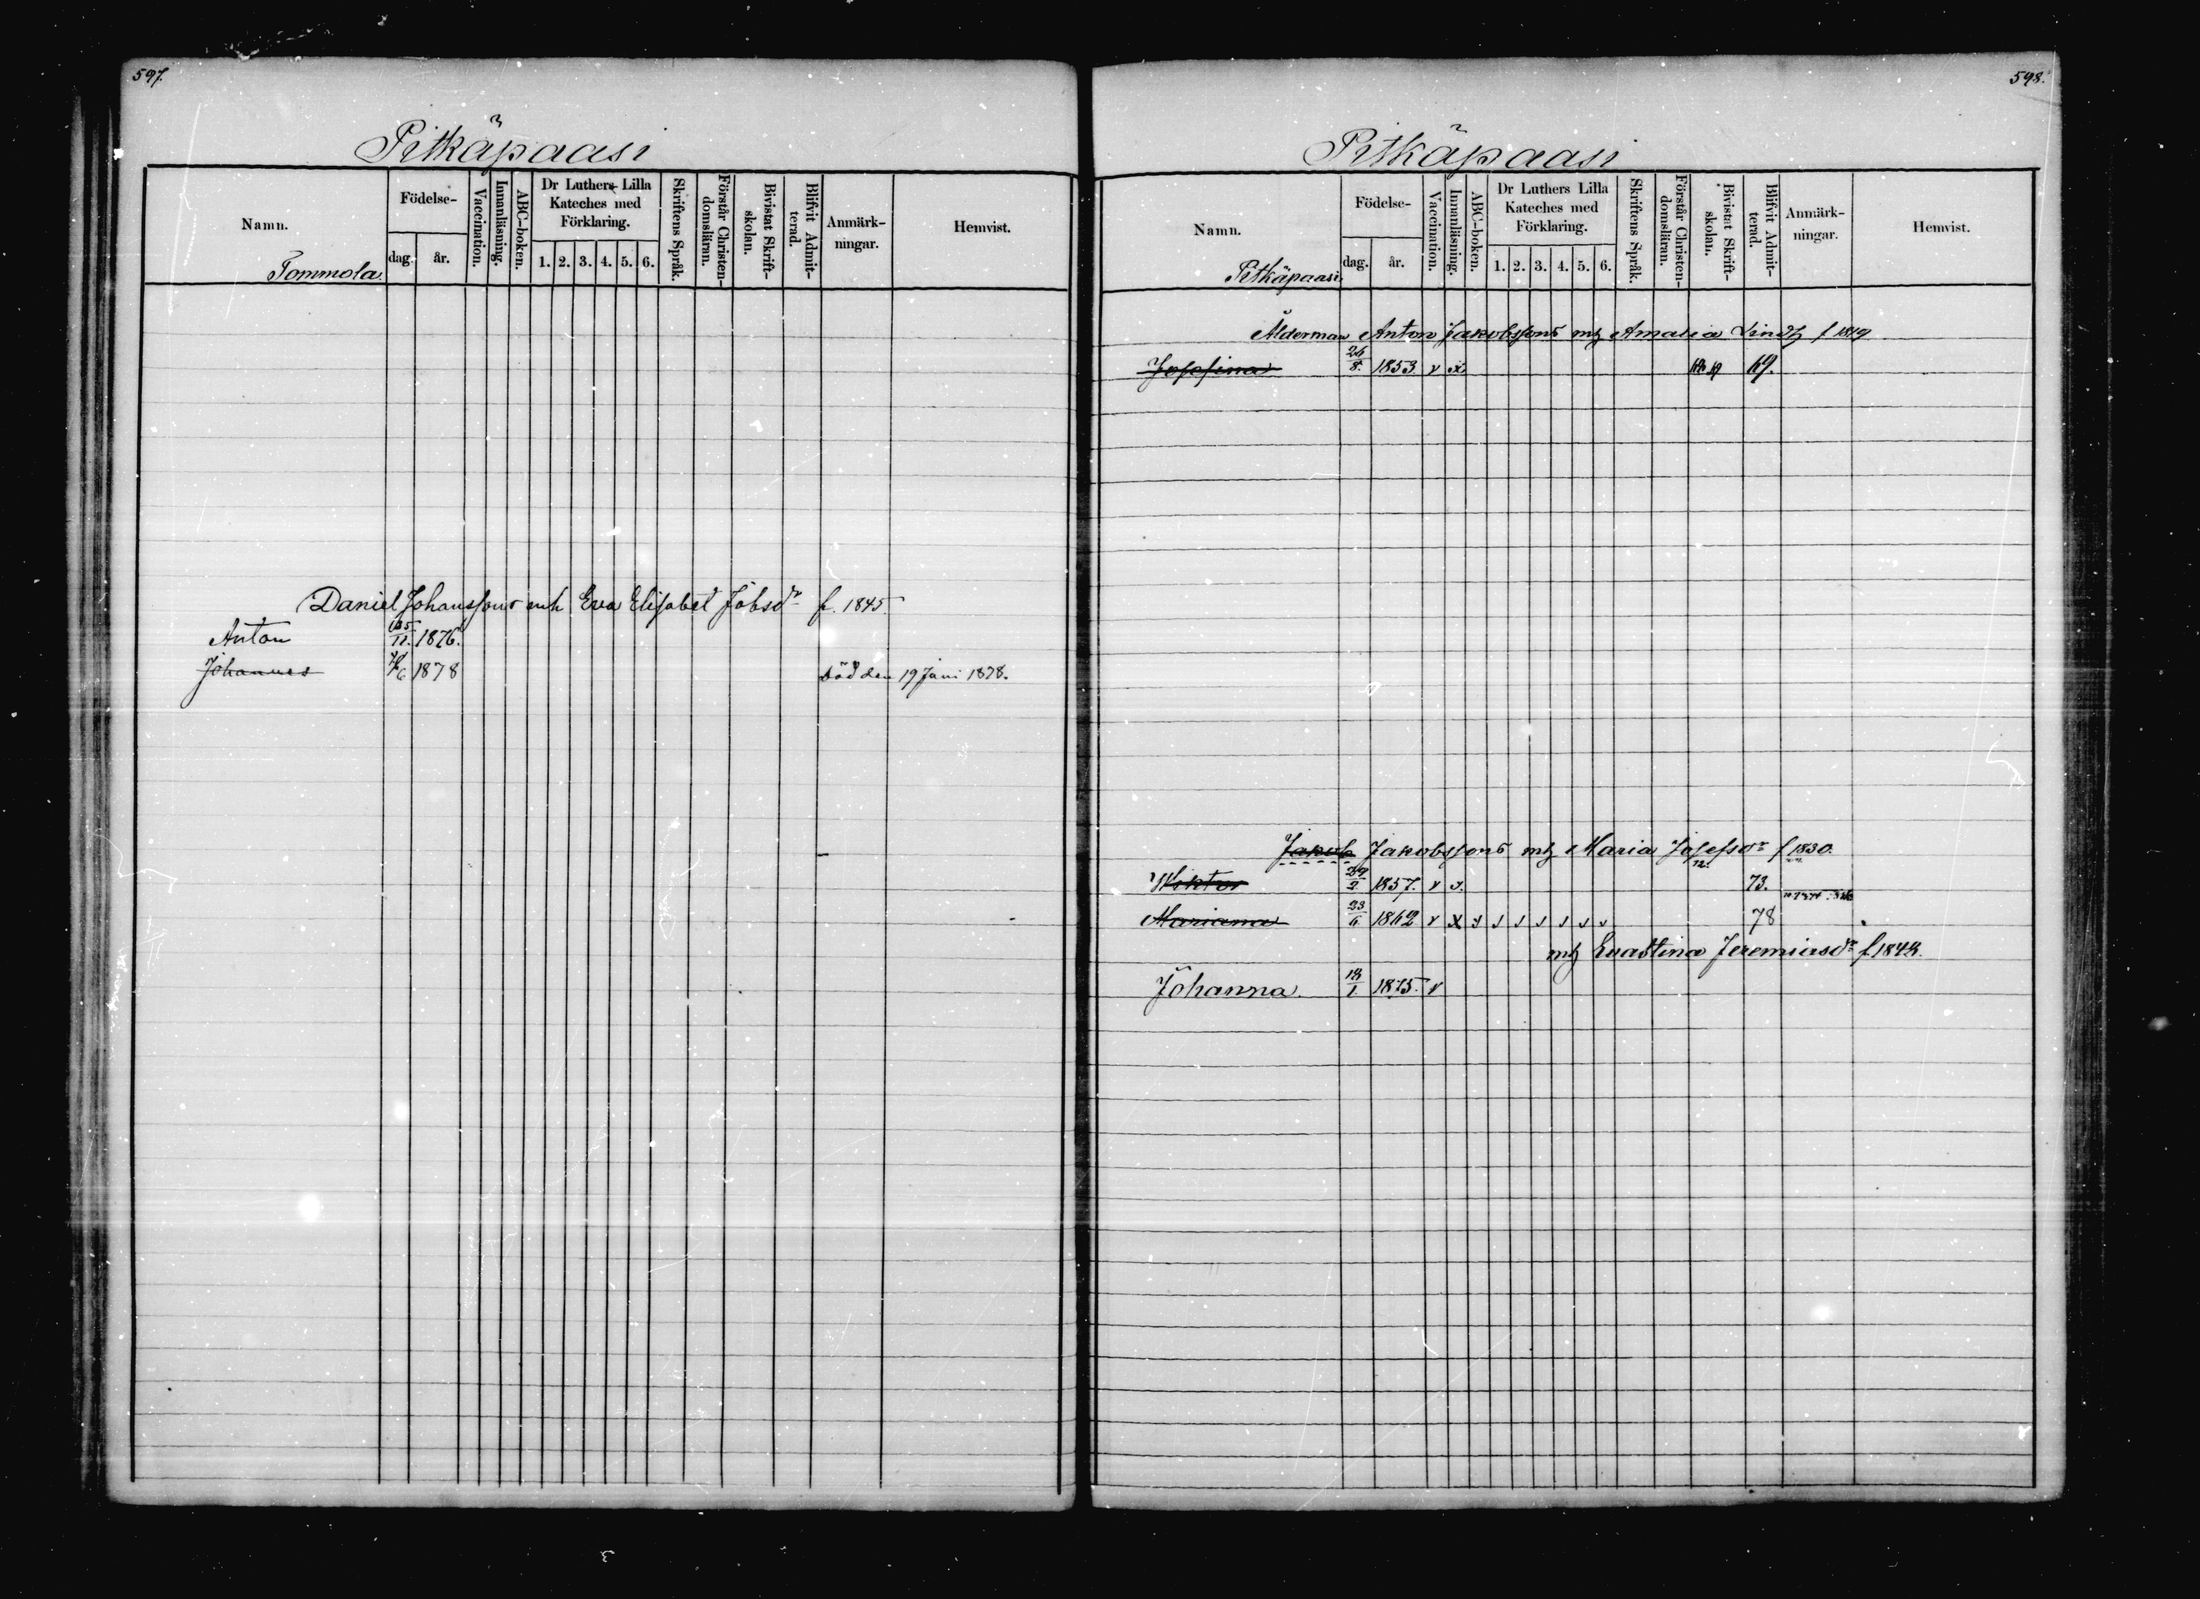 597.
Pitkäpaasi
Namn.
Födelse-
dag.
år.
Vaccination.
Innanläsning.
ABC-boken.
Dr Luthers Lilla
Kateches med
Förklaring.
1. 2. 3. 4. 5. 6.
Skriftens Språk.
Förstår Christen-
domsläran.
Bivistat Skrift-
skolan.
Blifvit Admit-
terad.
Anmärk-
ningar.
Hemvist.
Tommola
Daniel Johanssons mh Eva Elisabet Jobsdr f. 1845.
Anton 11. 1876.
Johannes 1878 Död den 19 Juni 1878.
598.
Pitkäpaasi
Namn.
Födelse-
dag.
år.
Vaccination.
Innanläsning.
ABC-boken.
Dr Luthers Lilla
Kateches med
Förklaring.
1. 2. 3. 4. 5. 6.
Skriftens Språk.
Förstår Christen-
domsläran.
Bivistat Skrift-
skolan.
Blifvit Admit-
terad.
Anmärk-
ningar.
Hemvist.
Pitkäpaasi
Ålderman Anton Jakobssons mh Amalia Lindh f 1819
Josefina 26/8. 1853 v x 69.
Jakob Jakobssons mh Maria Josefsdr f 1830.
Wiktor 1857. v 73.
Marianna 23/6 1862 v x 78
mh Evastina Jeremiasdr f. 1843.
Johanna. 1875. v